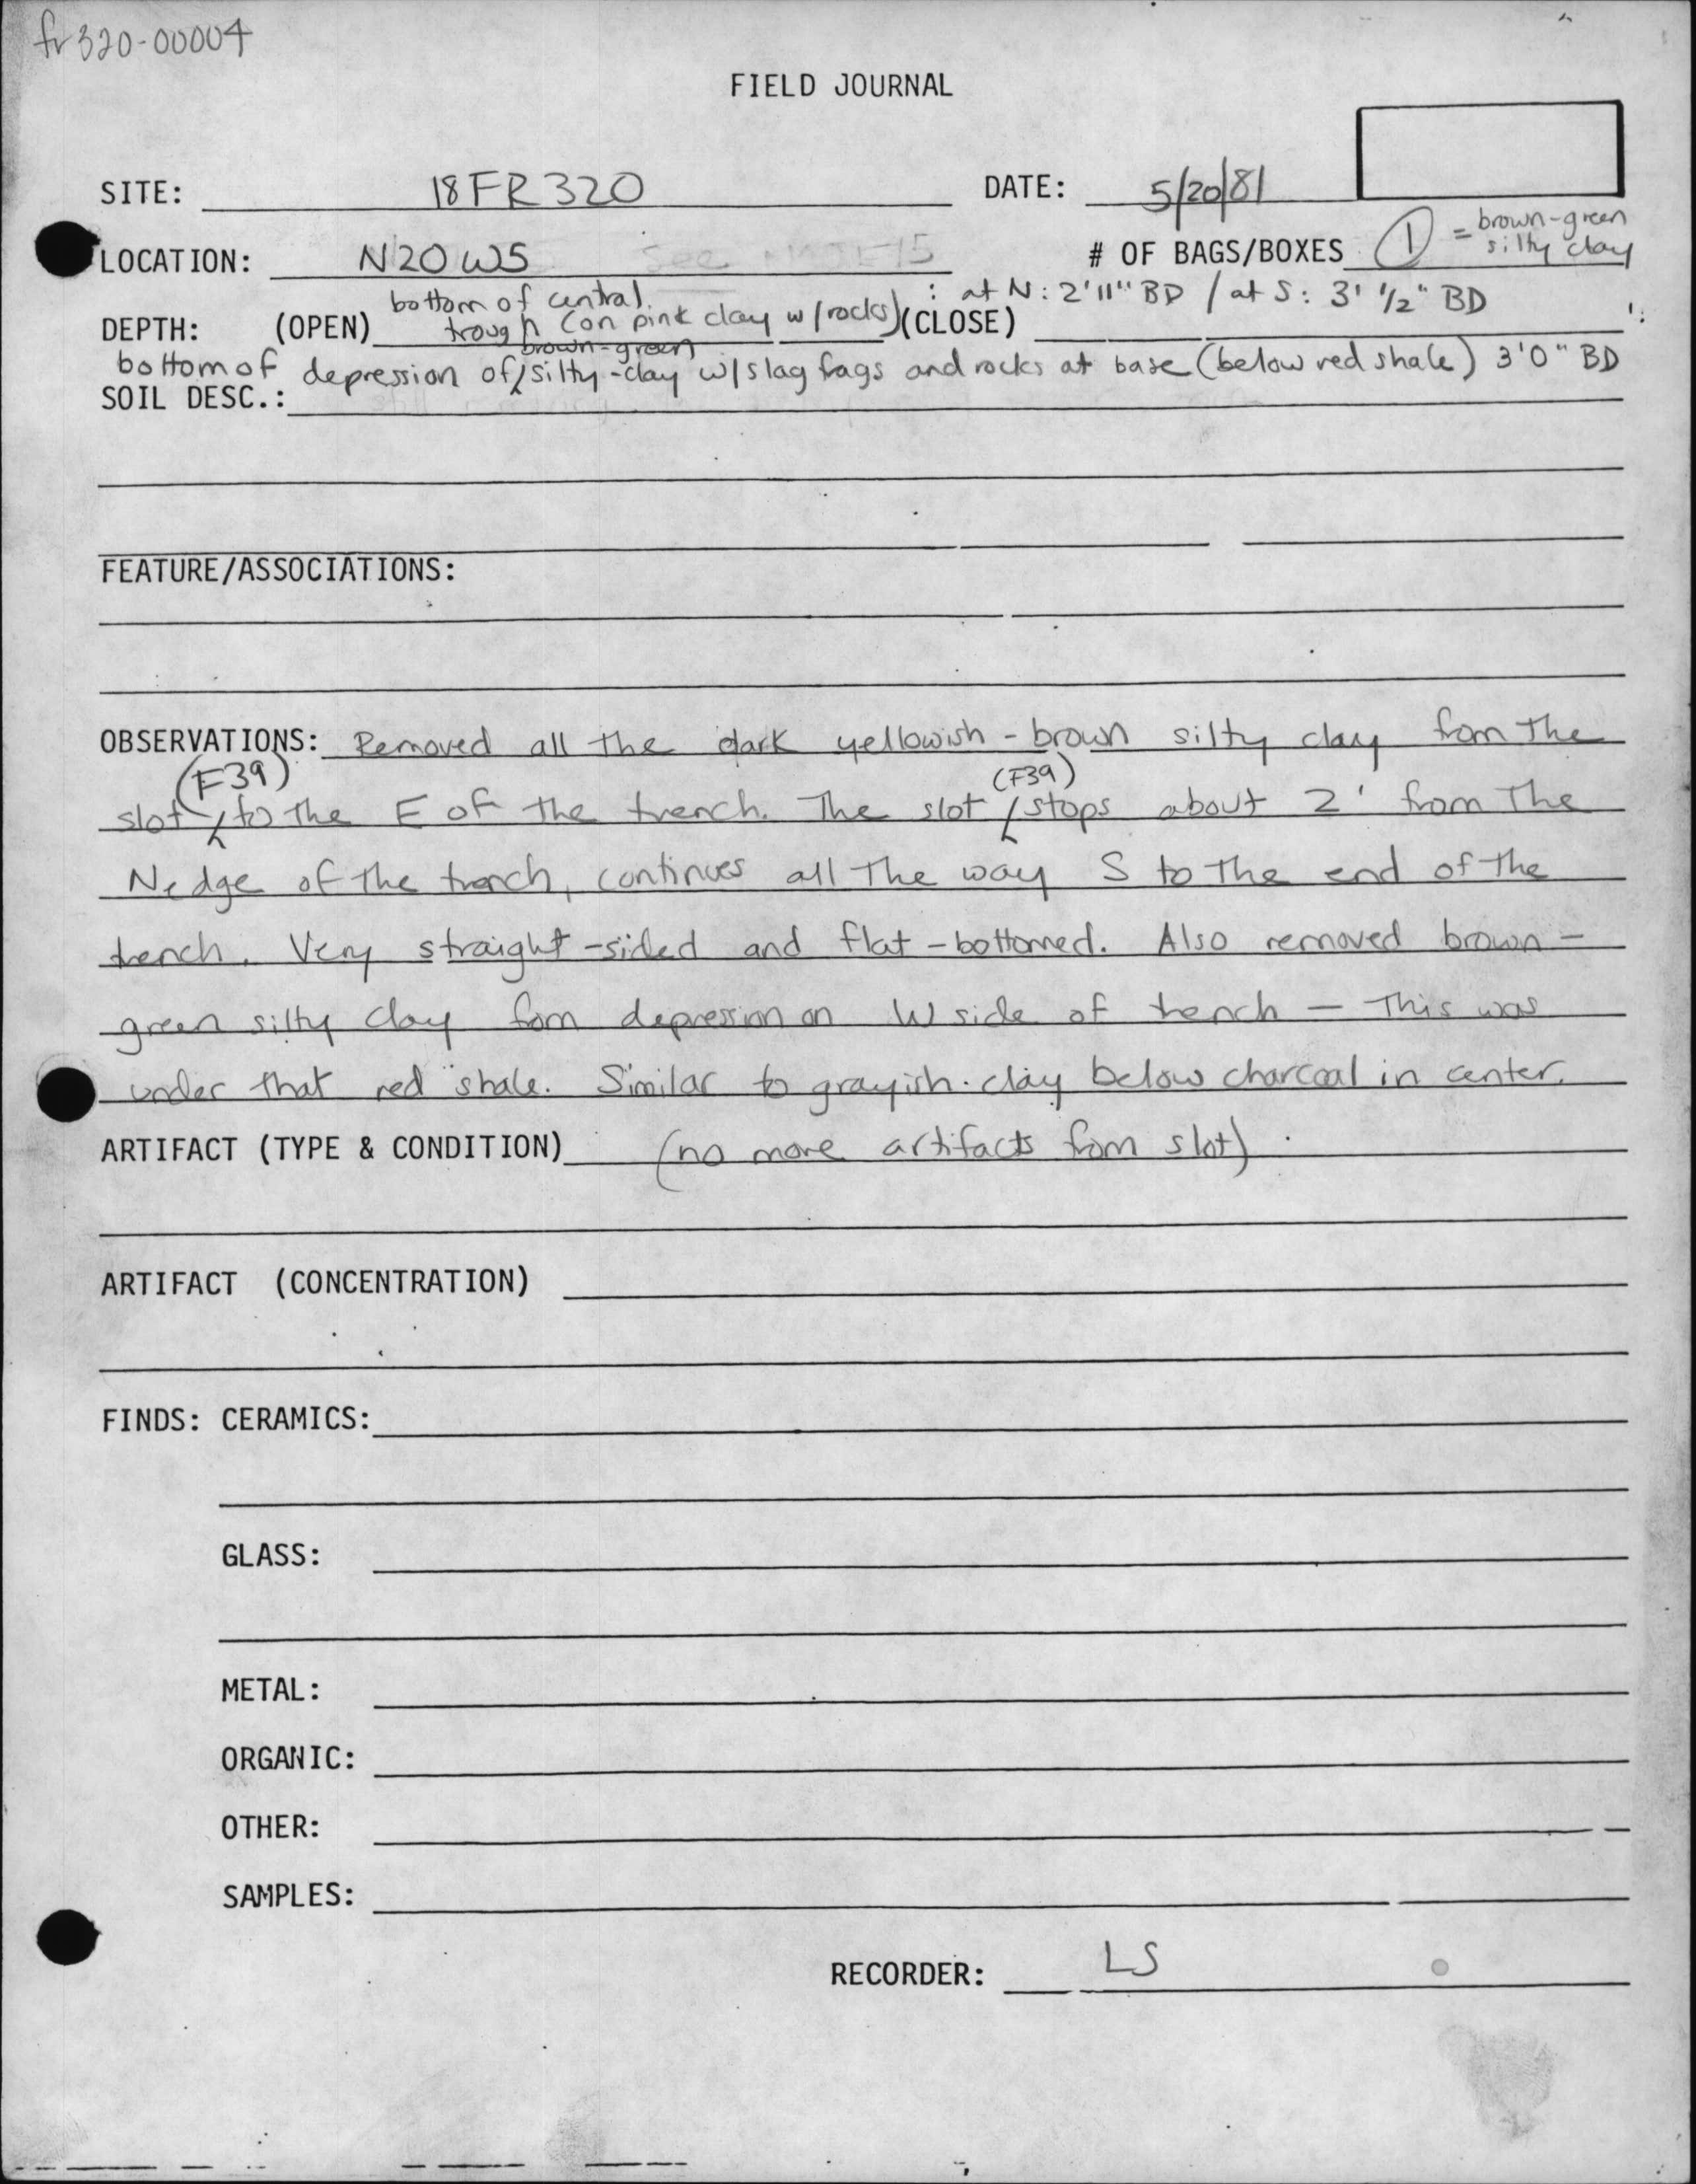 fr320-00004
FIELD JOURNAL
SITE: 18FR320 DATE: 5/20/81
LOCATION: N20W5 See # OF BAGS/BOXES 1 = brown-green
silty clay
bottom of central : at N: 2'11" BD / at S: 3' 1/2" BD
DEPTH: (OPEN) trough (on pink clay w/rocks) (CLOSE)
brown-green
bottom of depression of silty-clay w/slag frags and rocks at base (below red shale) 3'0" BD
SOIL DESC.:
FEATURE/ASSOCIATIONS:
OBSERVATIONS: Removed all the dark yellowish-brown silty clay from the
(F39) (F39)
slot to the E of the trench. The slot stops about 2' from the
N edge of the trench, continues all the way S to the end of the
trench. Very straight-sided and flat-bottomed. Also removed brown-
green silty clay from depression on W side of trench — This was
under that red shale. Similar to grayish clay below charcoal in center.
ARTIFACT (TYPE & CONDITION) (no more artifacts from slot)
ARTIFACT (CONCENTRATION)
FINDS: CERAMICS:
GLASS:
METAL:
ORGANIC:
OTHER:
SAMPLES:
RECORDER: LS